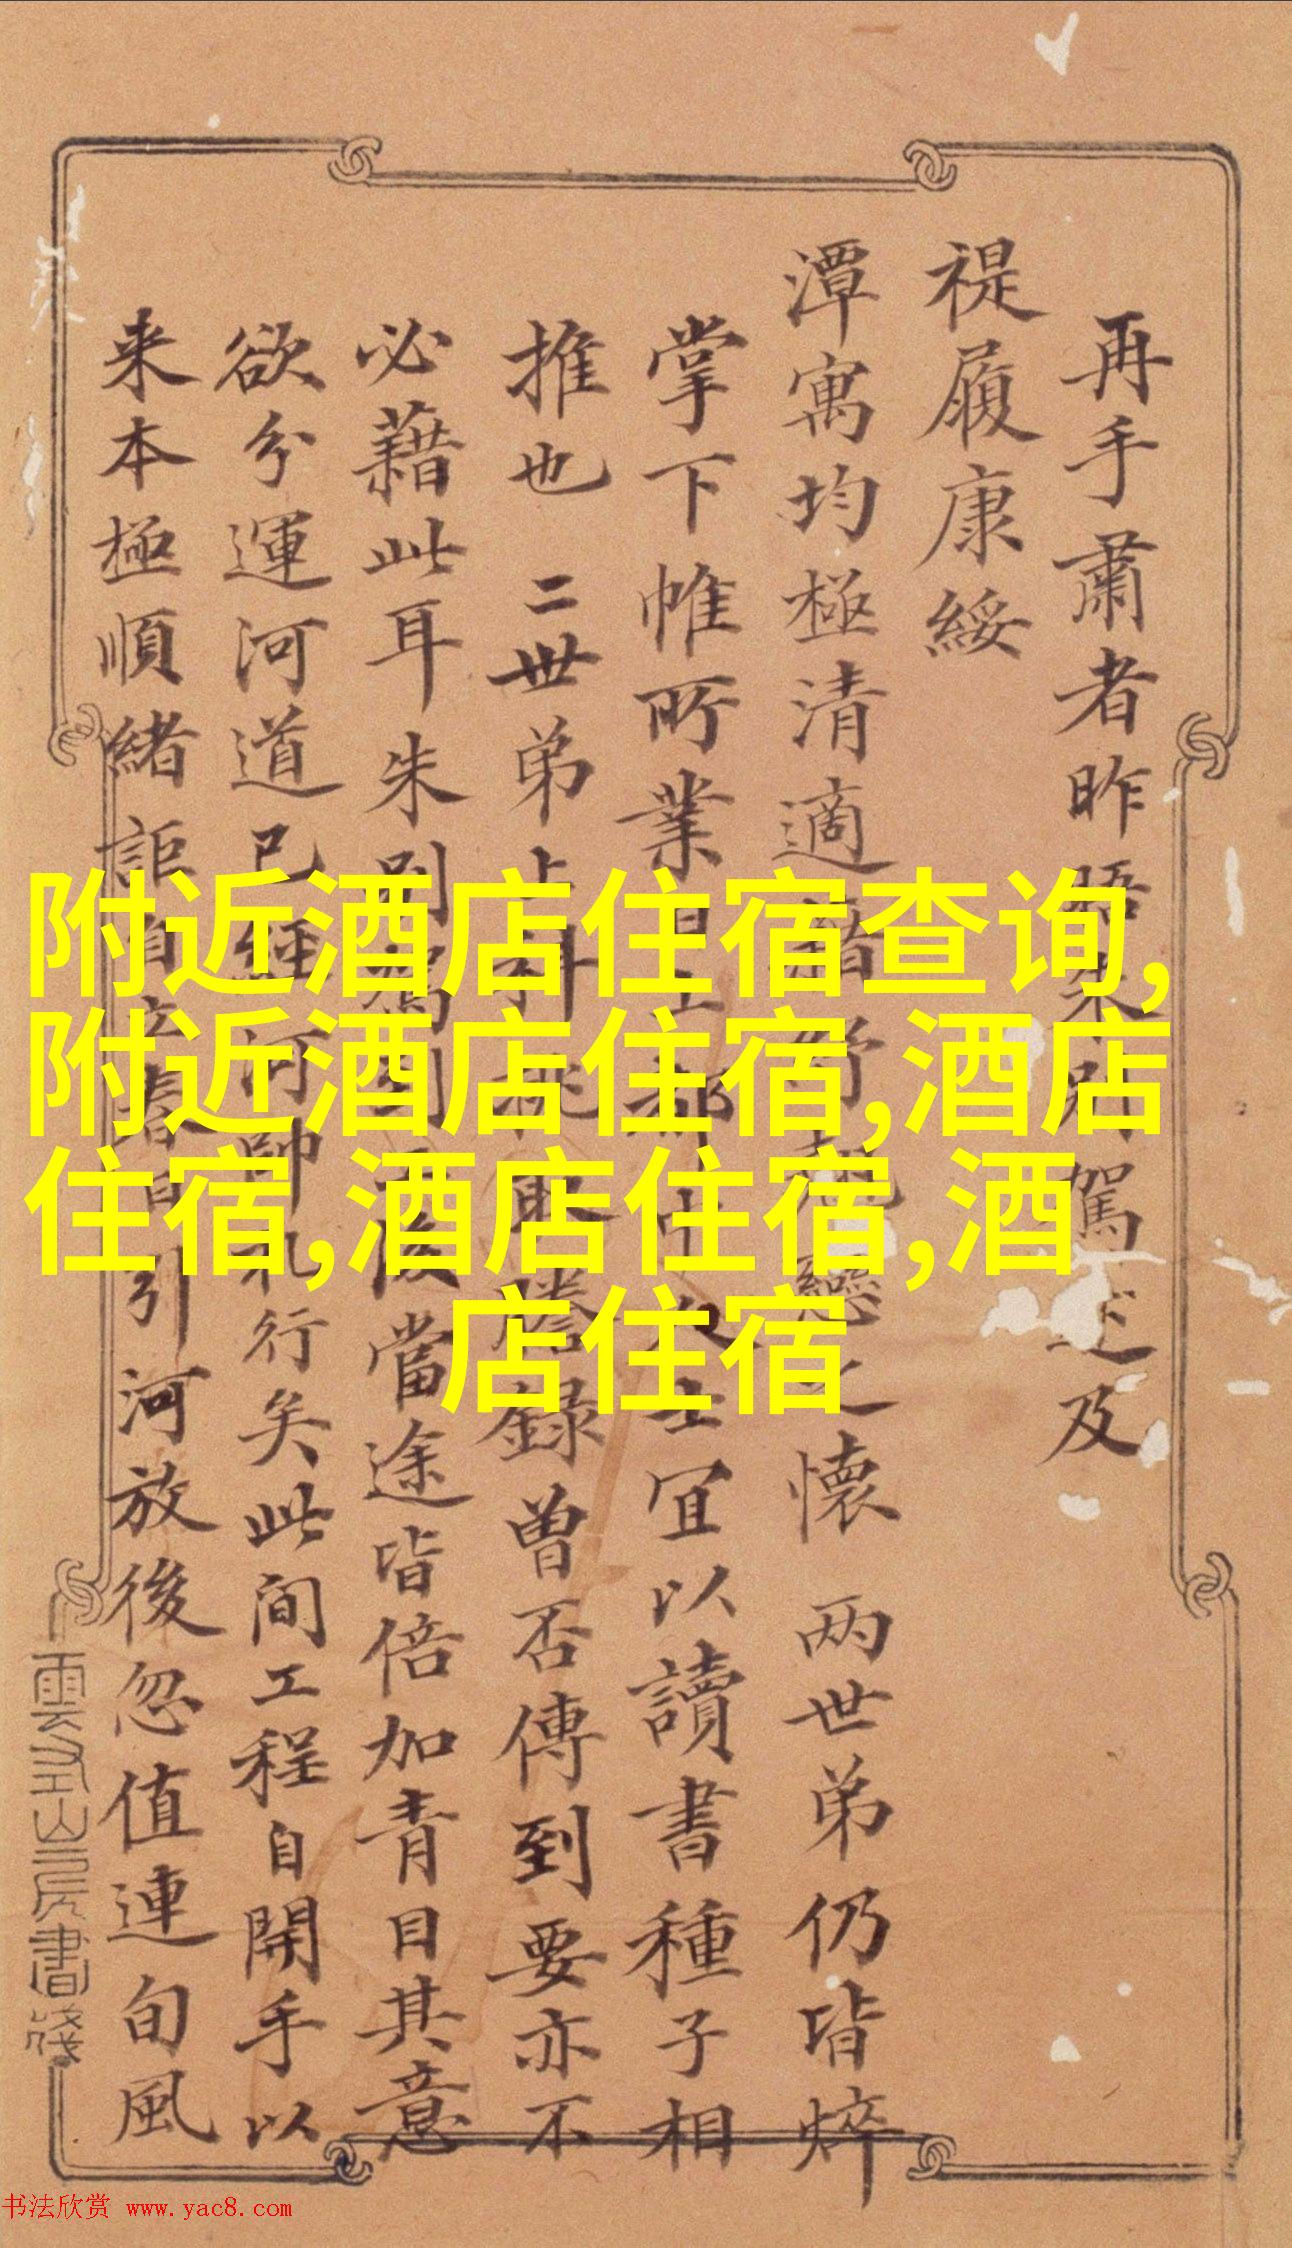 再手肅者昨晤朱別駕述及
禔履康綏
潭寓均極清適 懷 两世弟仍皆焠
掌下帷所業 宜以讀書種子相
推也 二世弟 謄錄曾否傳到要亦不
必藉此耳朱別駕到 後當途皆倍加青目其意
欲兮運河道已經河帥札行矣此间工程自開手以
来本極順緒詎自立春日引河放後忽值連旬風
附近酒店住宿查询,
附近酒店住宿,酒店
住宿,酒店住宿,酒
店住宿
書箋
书法欣赏 www.yac8.com